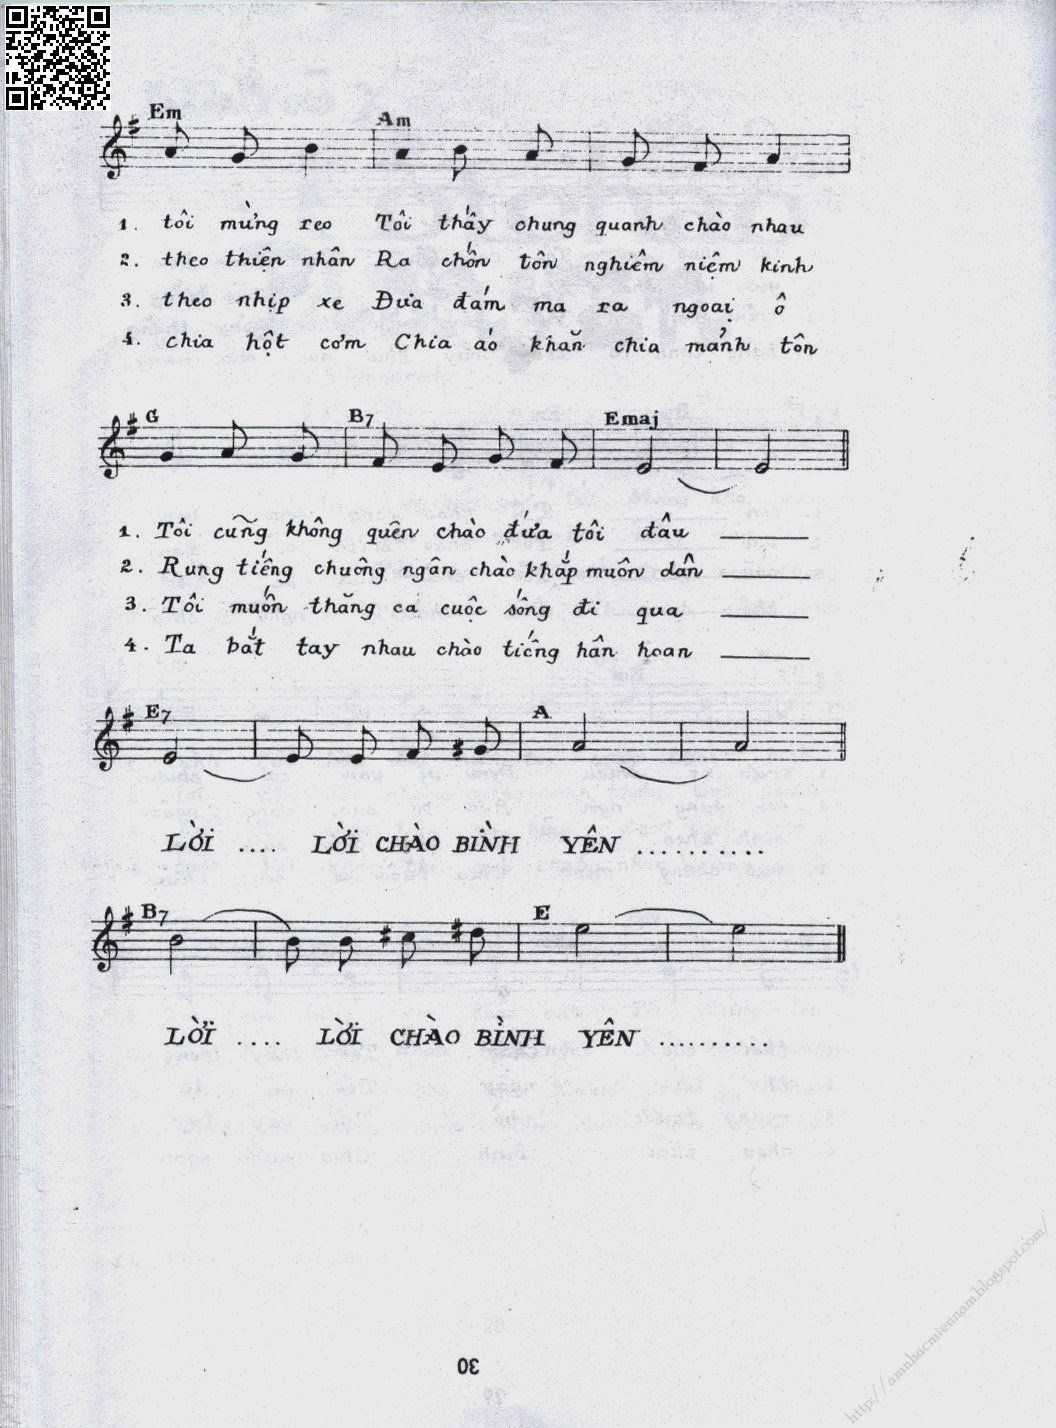 Em Am
1. tôi mừng reo Tôi thấy chung quanh chào nhau
2. theo thiện nhân Ra chốn tôn nghiêm niệm kinh
3. theo nhịp xe Đưa đám ma ra ngoại ô
4. chia hột cơm Chia áo khăn chia mảnh tôn
G B7 Emaj
1. Tôi cũng không quên chào đứa tôi đâu
2. Rung tiếng chuông ngân chào khắp muôn dân
3. Tôi muốn thăng ca cuộc sống đi qua
4. Ta bắt tay nhau chào tiếng hân hoan
E7 A
LỜI .... LỜI CHÀO BÌNH YÊN ..........
B7 E
LỜI .... LỜI CHÀO BÌNH YÊN ..........
30
http://amnhacmiennam.blogspot.com/